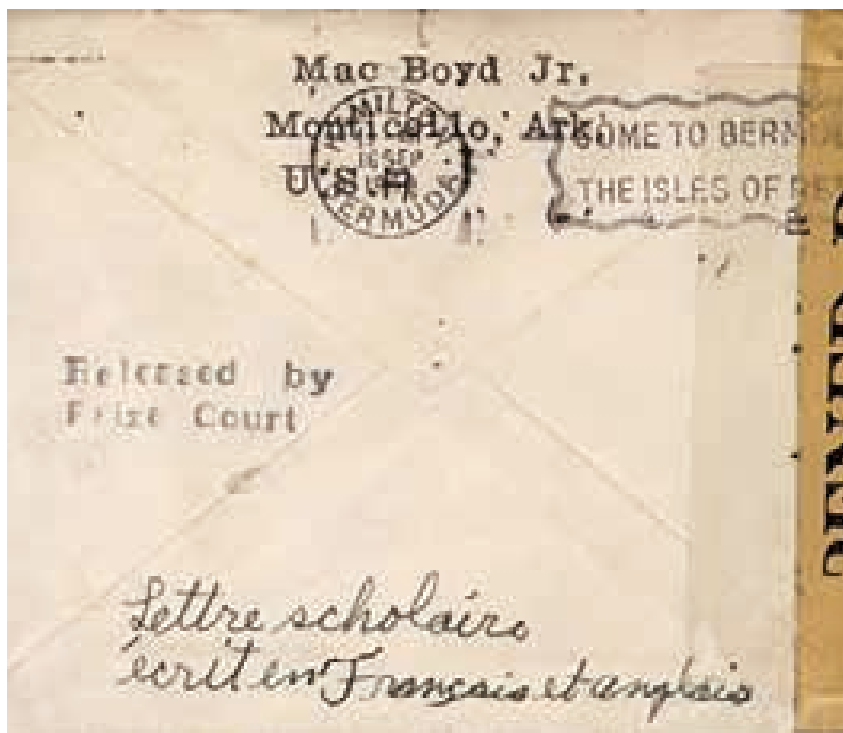 Mac Boyd Jr.
Monticello, Ark.
U.S.A
HAMILTON
16 SEP
BERMUDA
COME TO BERMU
THE ISLES OF RE
Released by
Prize Court
Lettre scholaire
écrit en Français et anglais
PENED B